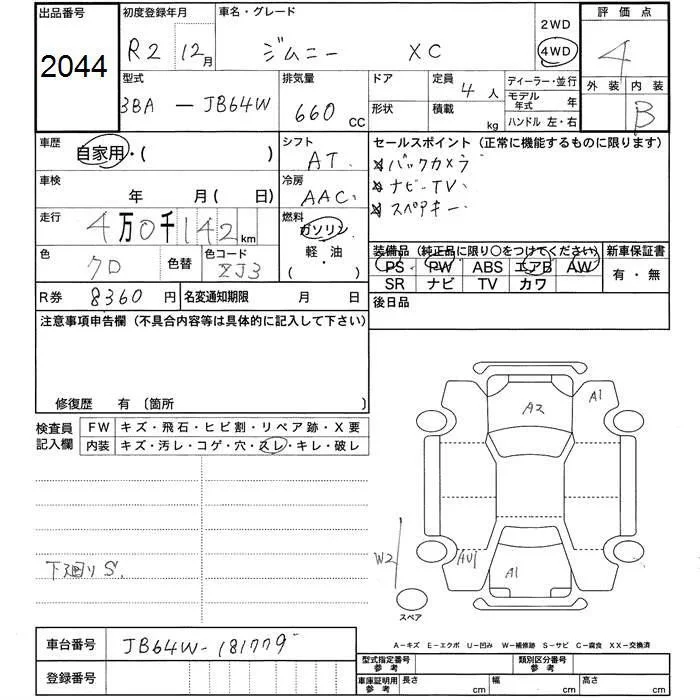 出品番号 初度登録年月 車名・グレード 2WD 評価点
2044 R2 12月 ジムニー XC 4WD 4
型式 排気量 ドア 定員 4人 ディーラー・並行 外装 内装
3BA-JB64W 660 CC 形状 積載 kg モデル年式 年 B
ハンドル 左・右
車歴 自家用・( ) シフト AT セールスポイント(正常に機能するものに限ります)
バックカメラ
車検 年 月( 日) 冷房 AAC ナビ-TV
スペアキー
走行 4万0千142km 燃料 ガソリン
軽・油
・( )
色 7D 色替 色コード ZJ3
装備品(純正品に限り○をつけてください) 新車保証書
PS PW ABS エアB AW 有・無
SR ナビ TV カワ
R券 8360円 名変通知期限 月 日 後日品
注意事項申告欄(不具合内容等は具体的に記入して下さい)
修復歴 有〔箇所 〕
検査員記入欄 FW キズ・飛石・ヒビ割・リペア跡・X要
内装 キズ・汚レ・コゲ・穴・スレ・キレ・破レ
A2 A1
下廻りS
W2 AU1 A1
スペア
車台番号 JB64W-181779
A-キズ E-エクボ U-凹み W-補修跡 S-サビ C-腐食 XX-交換済
登録番号
型式指定番号参考 類別区分番号参考
車庫証明用参考 長さ cm 幅 cm 高さ cm